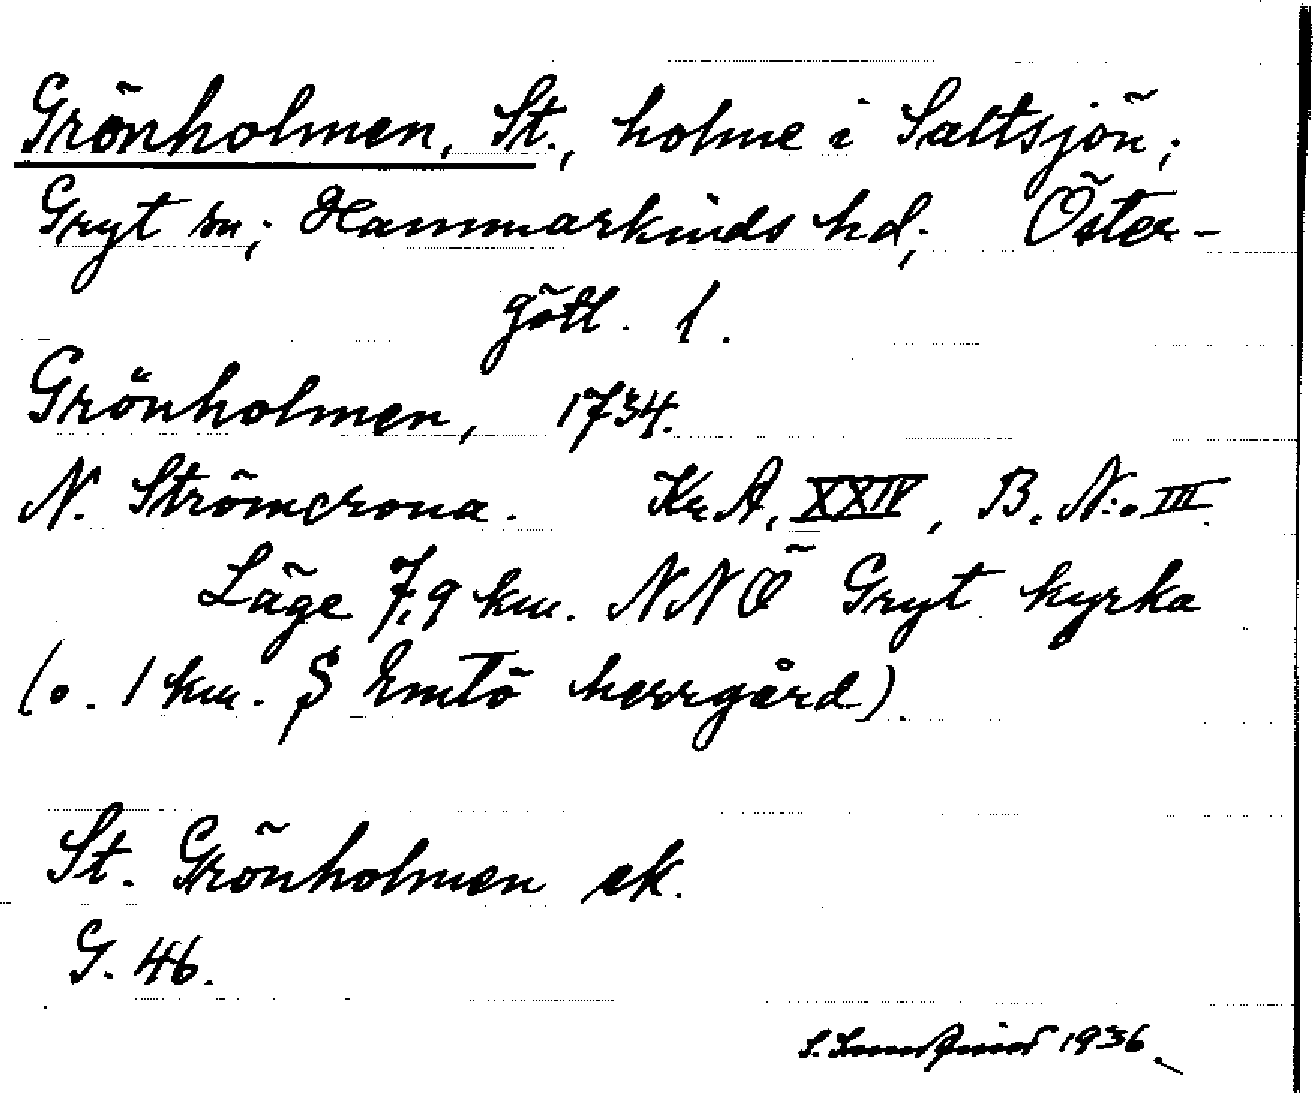 Grönholmen, St., holme i Saltsjön;
Gryt sn; Hammarkinds hd; Öster-
götl. l.
Grönholmen, 1734.
N. Strömcrona. Kr. A, XXIV, B. N:o III
Läge 7,9 km. NNÖ Gryt kyrka
(o. 1 km. S Emtö herrgård).
St. Grönholmen ek.
G. 46.
S. 1936